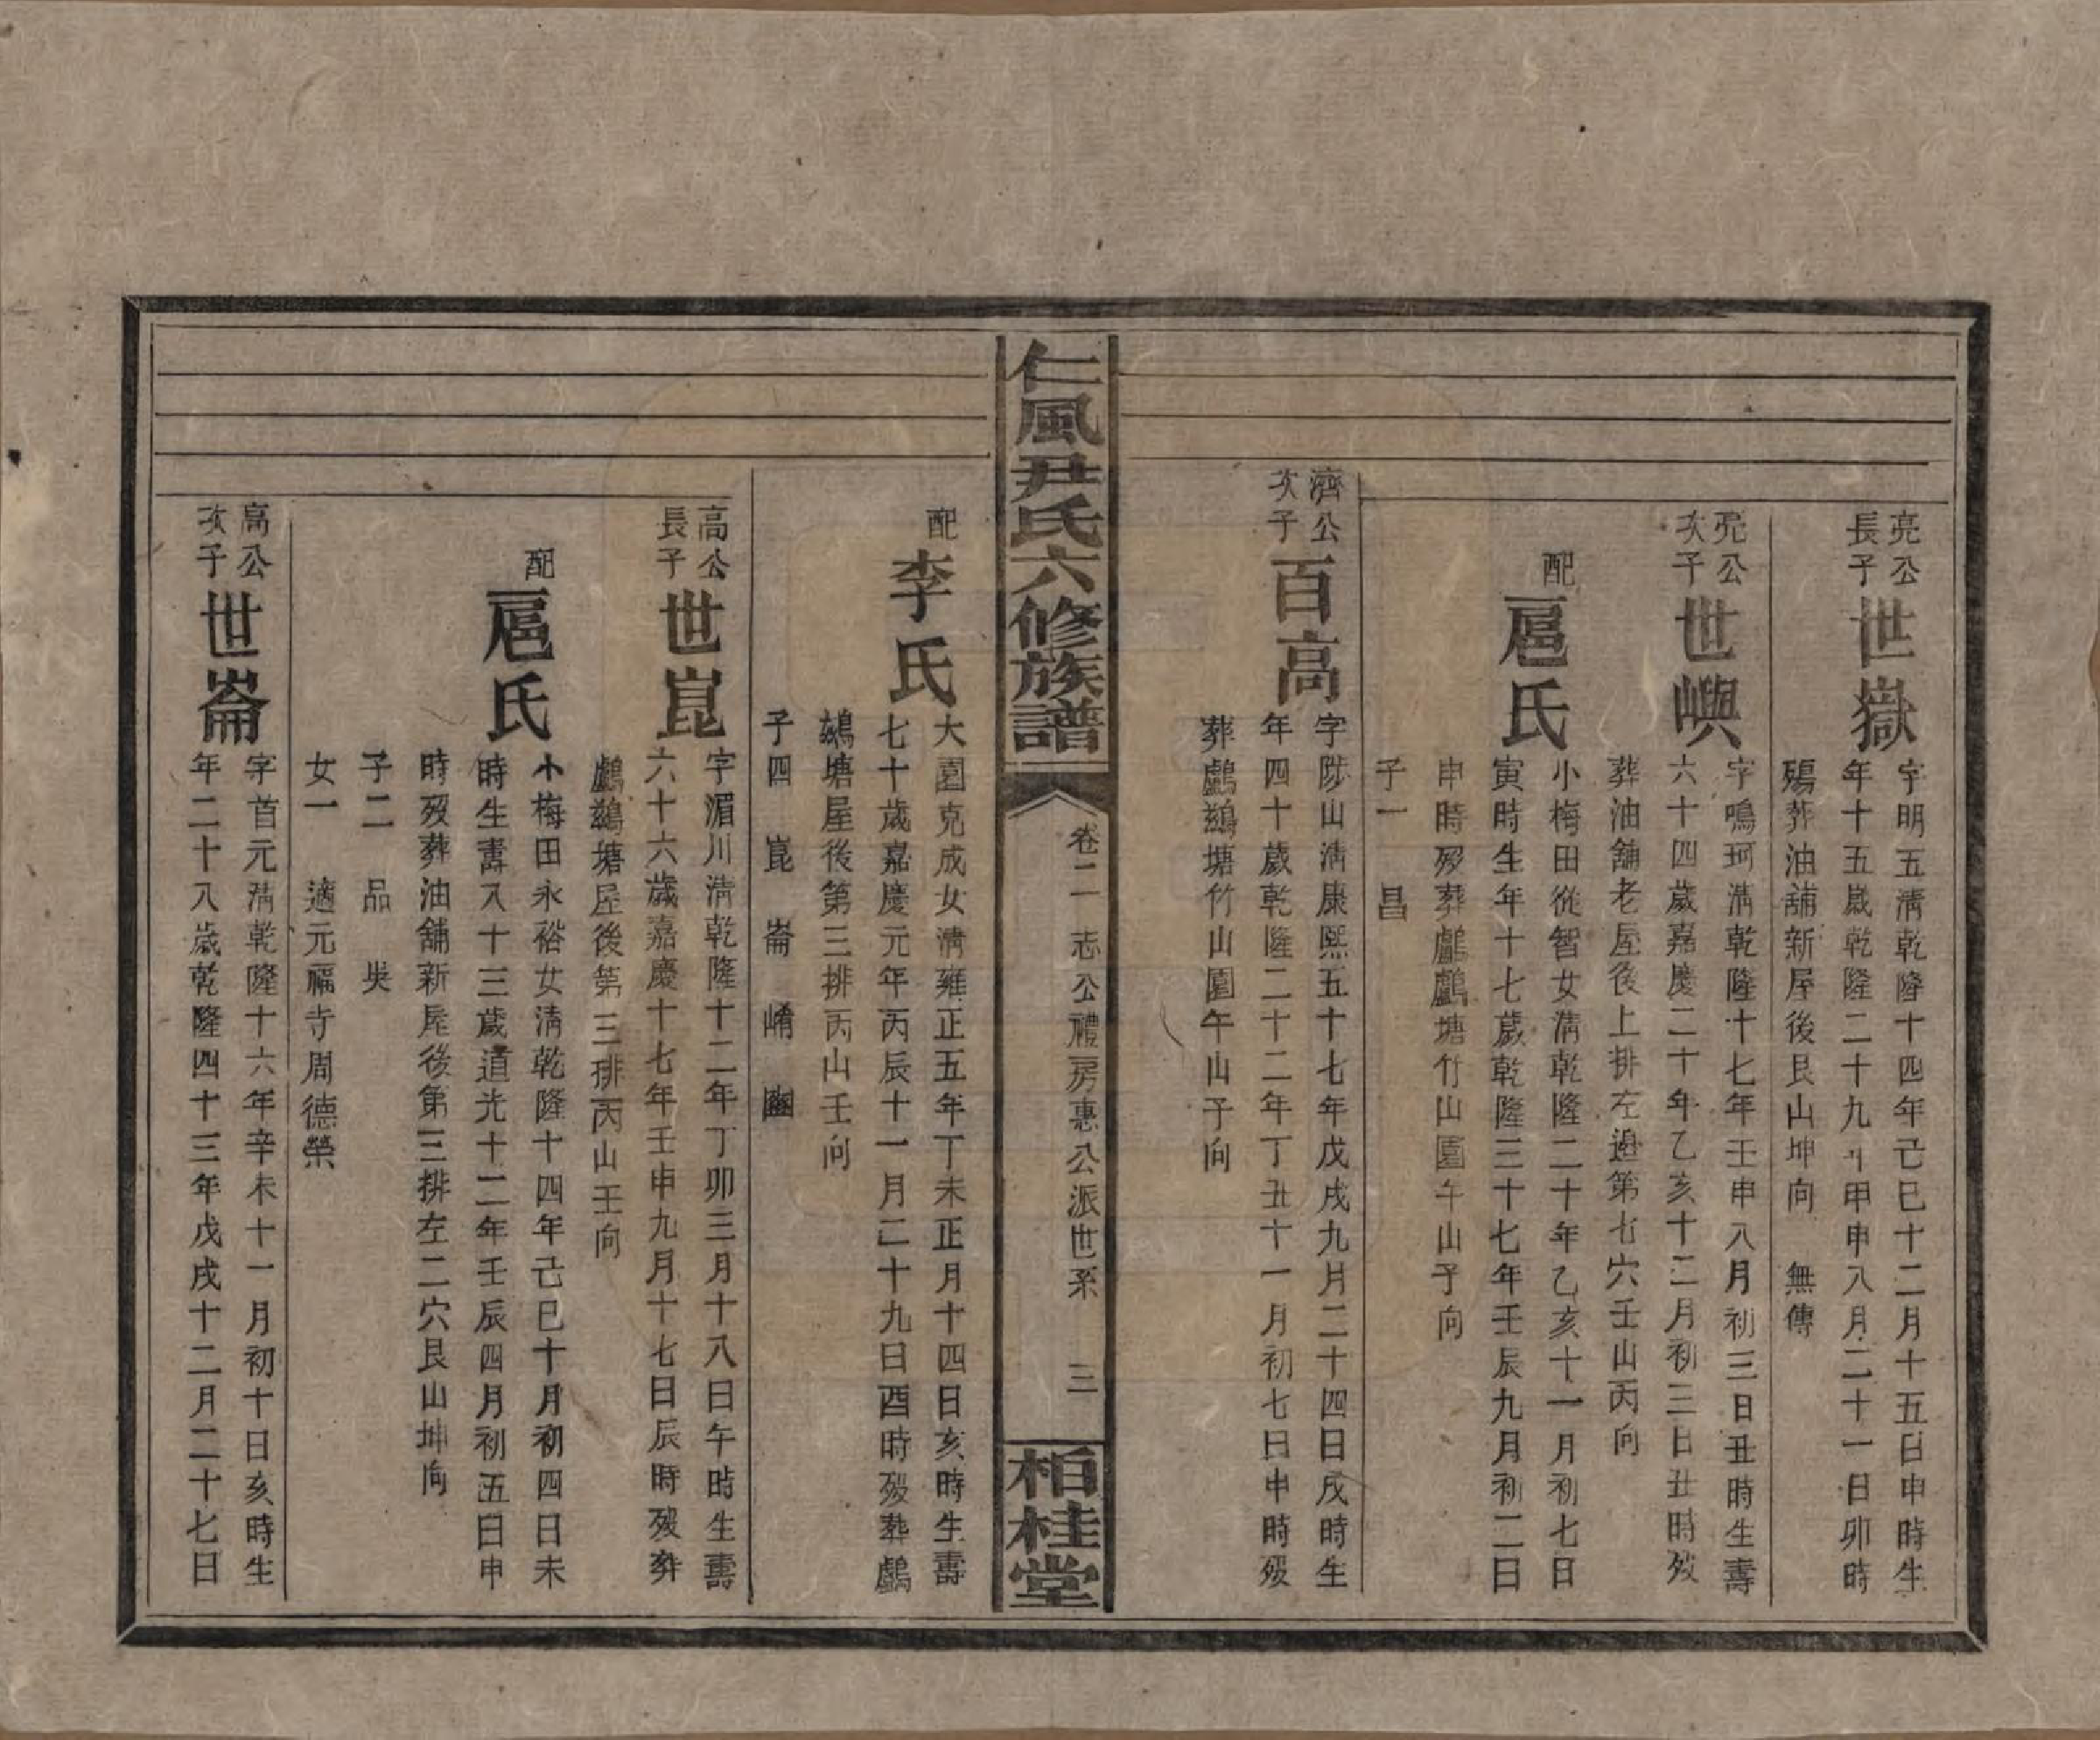 亮公長子
世嶽
字明五清乾隆十四年己巳十二月十五日申時生
年十五歲乾隆二十九年甲申八月二十一日卯時
殤葬油舖新屋後艮山坤向 無傳
亮公次子
世嶼
字鳴珂清乾隆十七年壬申八月初三日丑時生壽
六十四歲嘉慶二十年乙亥十二月初三日丑時歿
葬油舖老屋後上排左邊第七穴壬山丙向
配
扈氏
小梅田從智女清乾隆二十年乙亥十一月初七日
寅時生年十七歲乾隆三十七年壬辰九月初二日
申時歿葬鸕鸕塘竹山園午山子向
子一 昌
濟公次子
百高
字陟山清康熙五十七年戊戌九月二十四日戌時生
年四十歲乾隆二十二年丁丑十一月初七日申時歿
葬鸕鷀塘竹山園午山子向
仁風尹氏六修族譜
卷二 志公禮房惠公派世系 三
柏桂堂
配
李氏
大園克成女清雍正五年丁未正月十四日亥時生壽
七十歲嘉慶元年丙辰十一月二十九日酉時歿葬鸕
鷀塘屋後第三排丙山壬向
子四 崑 崙 崤
高公長子
世崑
字湄川清乾隆十二年丁卯三月十八日午時生壽
六十六歲嘉慶十七年壬申九月十七日辰時歿葬
鸕鷀塘屋後第三排丙山壬向
配
扈氏
小梅田永裕女清乾隆十四年己巳十月初四日未
時生壽八十三歲道光十二年壬辰四月初五日申
時歿葬油舖新屋後第三排左二穴艮山坤向
子二 品 昊
女一 適元福寺周德榮
高公次子
世崙
字首元清乾隆十六年辛未十一月初十日亥時生
年二十八歲乾隆四十三年戊戌十二月二十七日